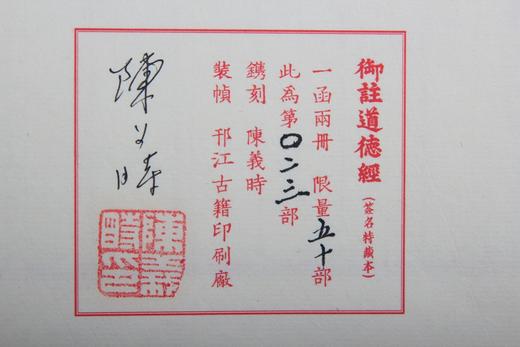 御註道德經（簽名特藏本）
一函兩冊 限量五十部
此為第〇二三部
鐫刻 陳義時
裝幀 邗江古籍印刷廠
陳义時
陳義時印